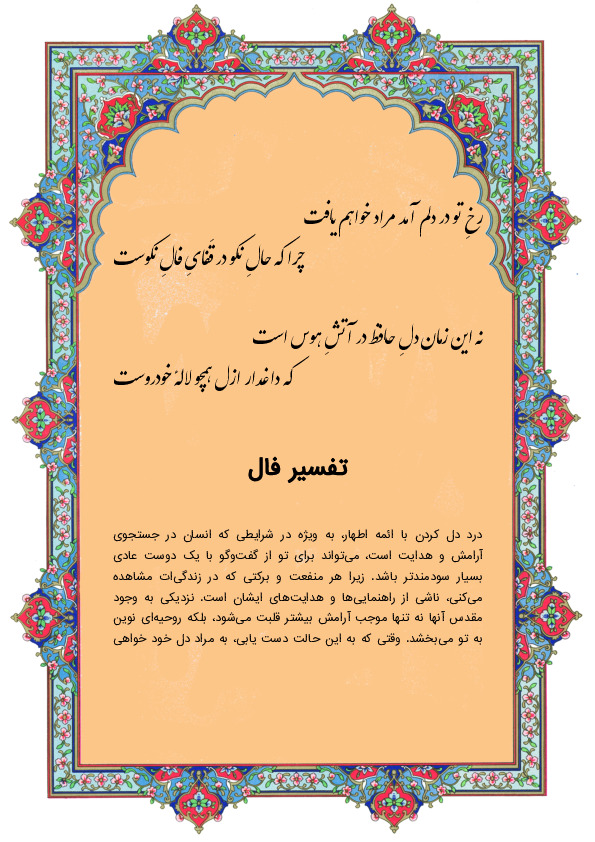 رخِ تو در دلم آمد مراد خواهم یافت
چرا که حالِ نکو در قَفایِ فالِ نکوست
نه این زمان دلِ حافظ در آتشِ هوس است
که داغدار ازل همچو لالهٔ خودروست
تفسیر فال
درد دل کردن با ائمه اطهار، به ویژه در شرایطی که انسان در جستجوی
آرامش و هدایت است، می‌تواند برای تو از گفت‌وگو با یک دوست عادی
بسیار سودمندتر باشد. زیرا هر منفعت و برکتی که در زندگی‌ات مشاهده
می‌کنی، ناشی از راهنمایی‌ها و هدایت‌های ایشان است. نزدیکی به وجود
مقدس آنها نه تنها موجب آرامش بیشتر قلبت می‌شود، بلکه روحیه‌ای نوین
به تو می‌بخشد. وقتی که به این حالت دست یابی، به مراد دل خود خواهی